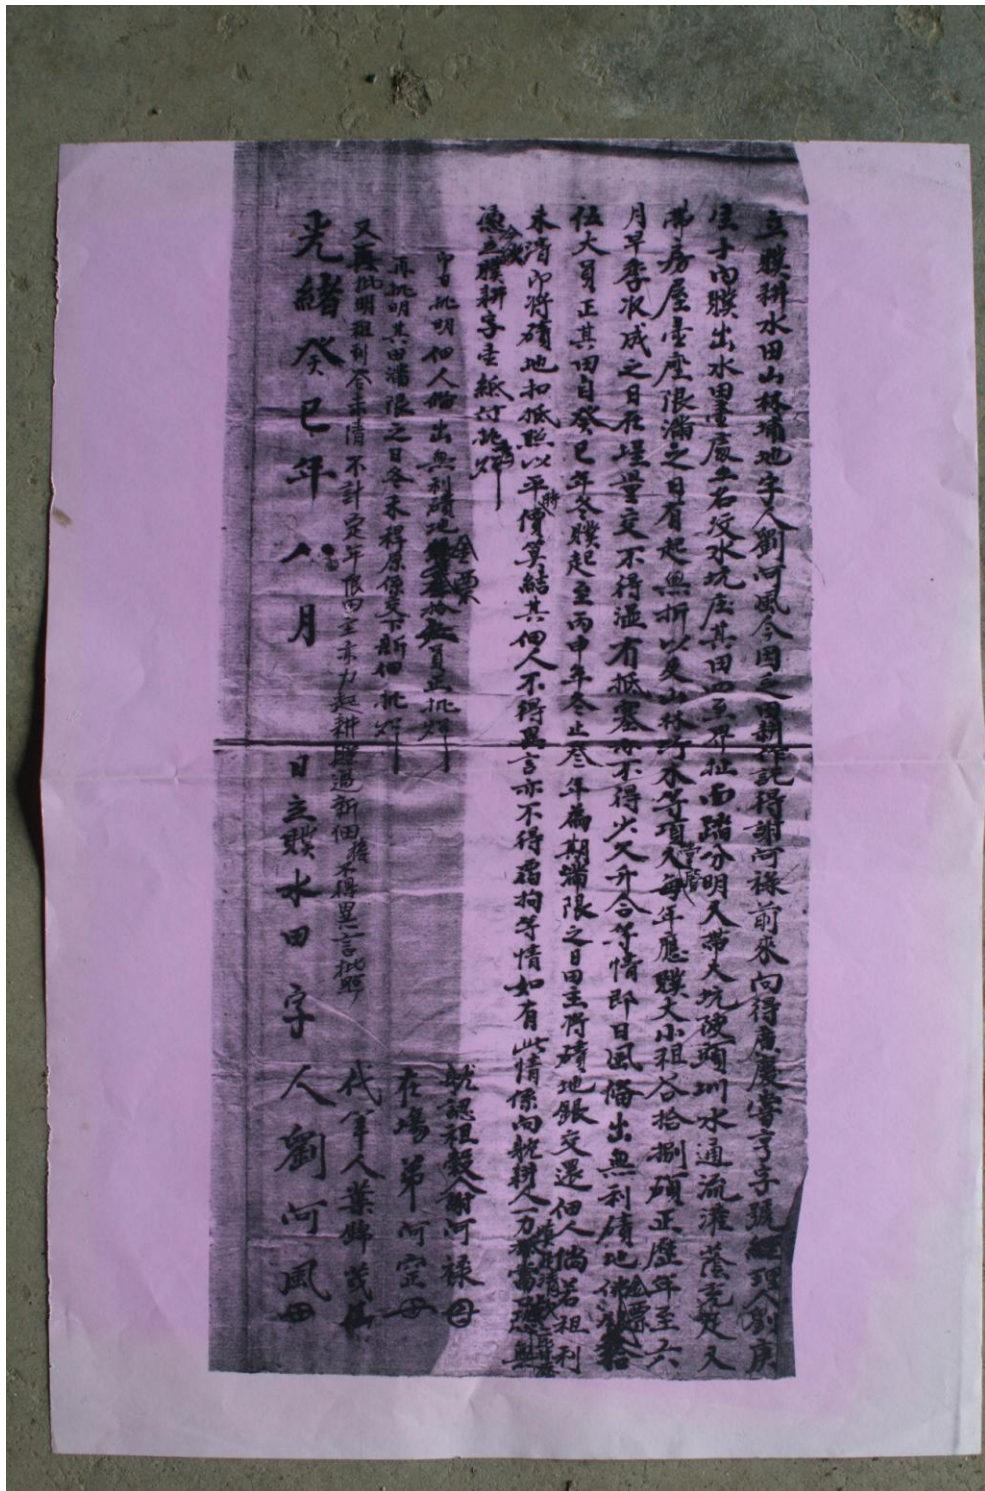 立贌耕水田山林埔地字人劉阿風今因乏田耕作託得謝阿祿前來向得廣慶嘗亨字號經理人劉庚
生手內贌出水田壹處坐石皎水坑庄其田四至界址面踏分明又帶大坑硬頭圳水通流灌蔭充足又
帶房屋壹座限滿之日有起無折以及山林竹木等項每年應贌大小租谷拾捌碩正歷年至六
月早季收成之日在埕量交不得濕有抵塞亦不得少欠升合等情即日風備出無利磧地
伍大員正其田自癸巳年冬贌起至丙申年冬止叁年為期滿限之日田主將磧地銀交還佃人倘若租利
未清即將磧地扣抵照以平時價算結其佃人不得異言亦不得霸拘等情如有此情係向就耕人一力無
憑立贌耕字壹紙付執炤
即日批明佃人備出無利磧地員正批炤
再批明其田滿限之日冬禾稈原係交下新佃批炤
又再批明租利谷未清不計定年限田主亦力起耕贌過新佃不得異言批照
就認租穀人謝阿祿
在場弟阿定
代筆人葉錦茂
光緒癸巳年八月 日立贌水田字人劉阿風